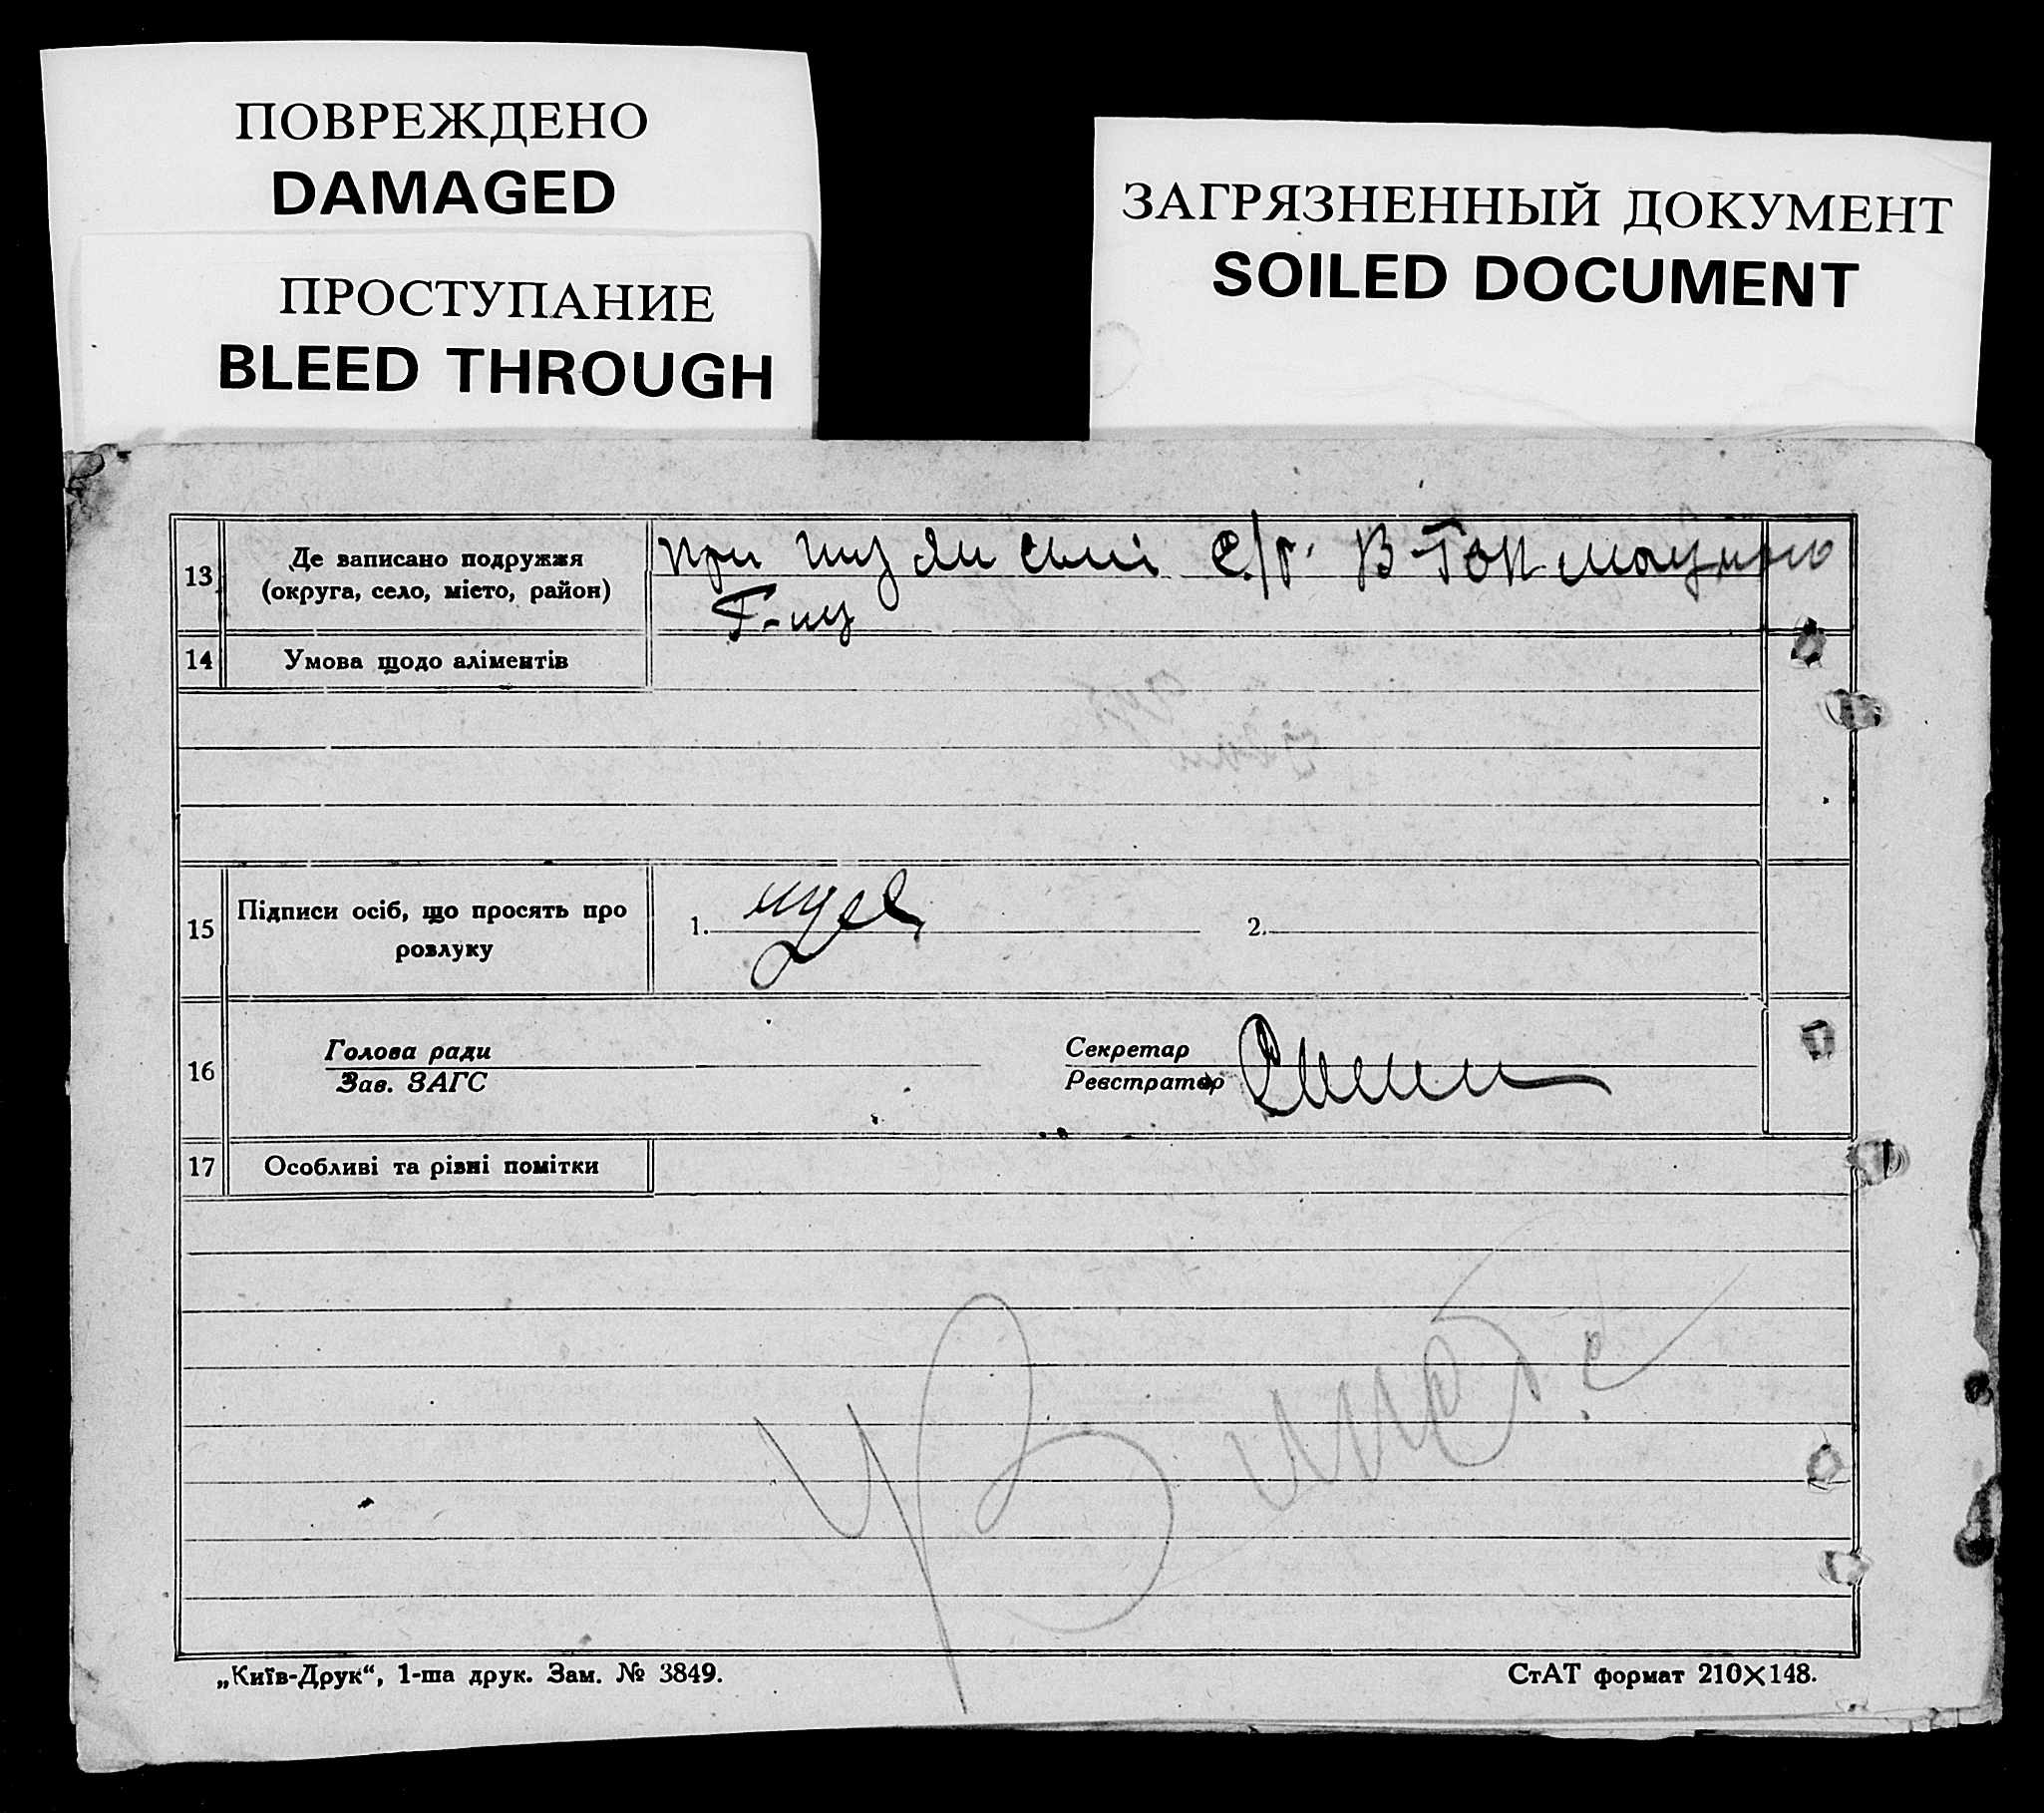 ПОВРЕЖДЕНО
DAMAGED
ПРОСТУПАНИЕ
BLEED THROUGH
ЗАГРЯЗНЕННЫЙ ДОКУМЕНТ
SOILED DOCUMENT
13 Де записано подружжя
(округа, село, місто, район)
при с/р. В-Ток
14 Умова щодо аліментів
15 Підписи осіб, що просять про
розлуку
1. 2.
16 Голова ради
Зав. ЗАГС
Секретар
Реєстратор
17 Особливі та різні помітки
„Київ-Друк“, 1-ша друк. Зам. № 3849.
СтАТ формат 210×148.